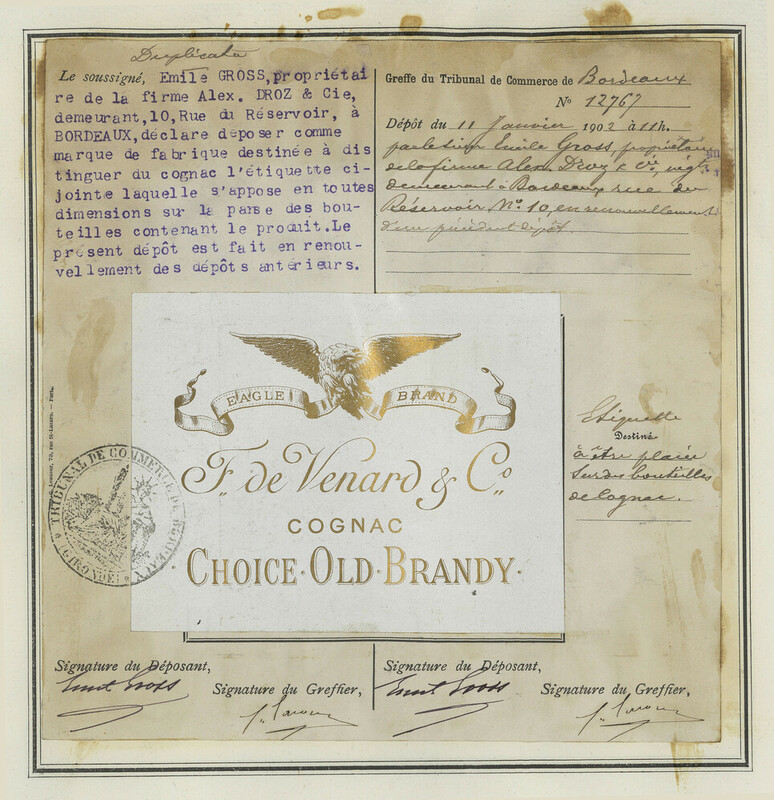 Duplicata
Le soussigné, Emile GROSS,propriétai
re de la firme Alex. DROZ & Cie,
demeurant,10,Rue du Réservoir, à
BORDEAUX,déclare déposer comme
marque de fabrique destinée à dis
tinguer du cognac l'étiquette ci-
jointe laquelle s'appose en toutes
dimensions sur la panse des bou-
teilles contenant le produit.Le
présent dépôt est fait en renou-
vellement des dépôts antérieurs.
Greffe du Tribunal de Commerce de Bordeaux
No 12767
Dépôt du 11 Janvier 1902 à 11h.
par le sieur Emile Gross, propriétaire
de la firme Alex. Droz & Cie, négt
demeurant à Bordeaux rue du
Réservoir No. 10, en renouvellement
d'un précédent dépôt.
EAGLE BRAND
F. de Venard & Co.
COGNAC
CHOICE·OLD·BRANDY·
Etiquette
Destiné
à être placée
sur des bouteilles
de Cognac.
TRIBUNAL DE COMMERCE DE BORDEAUX
GIRONDE
Signature du Déposant,
Emile Gross
Signature du Greffier,
Signature du Déposant,
Emile Gross
Signature du Greffier,